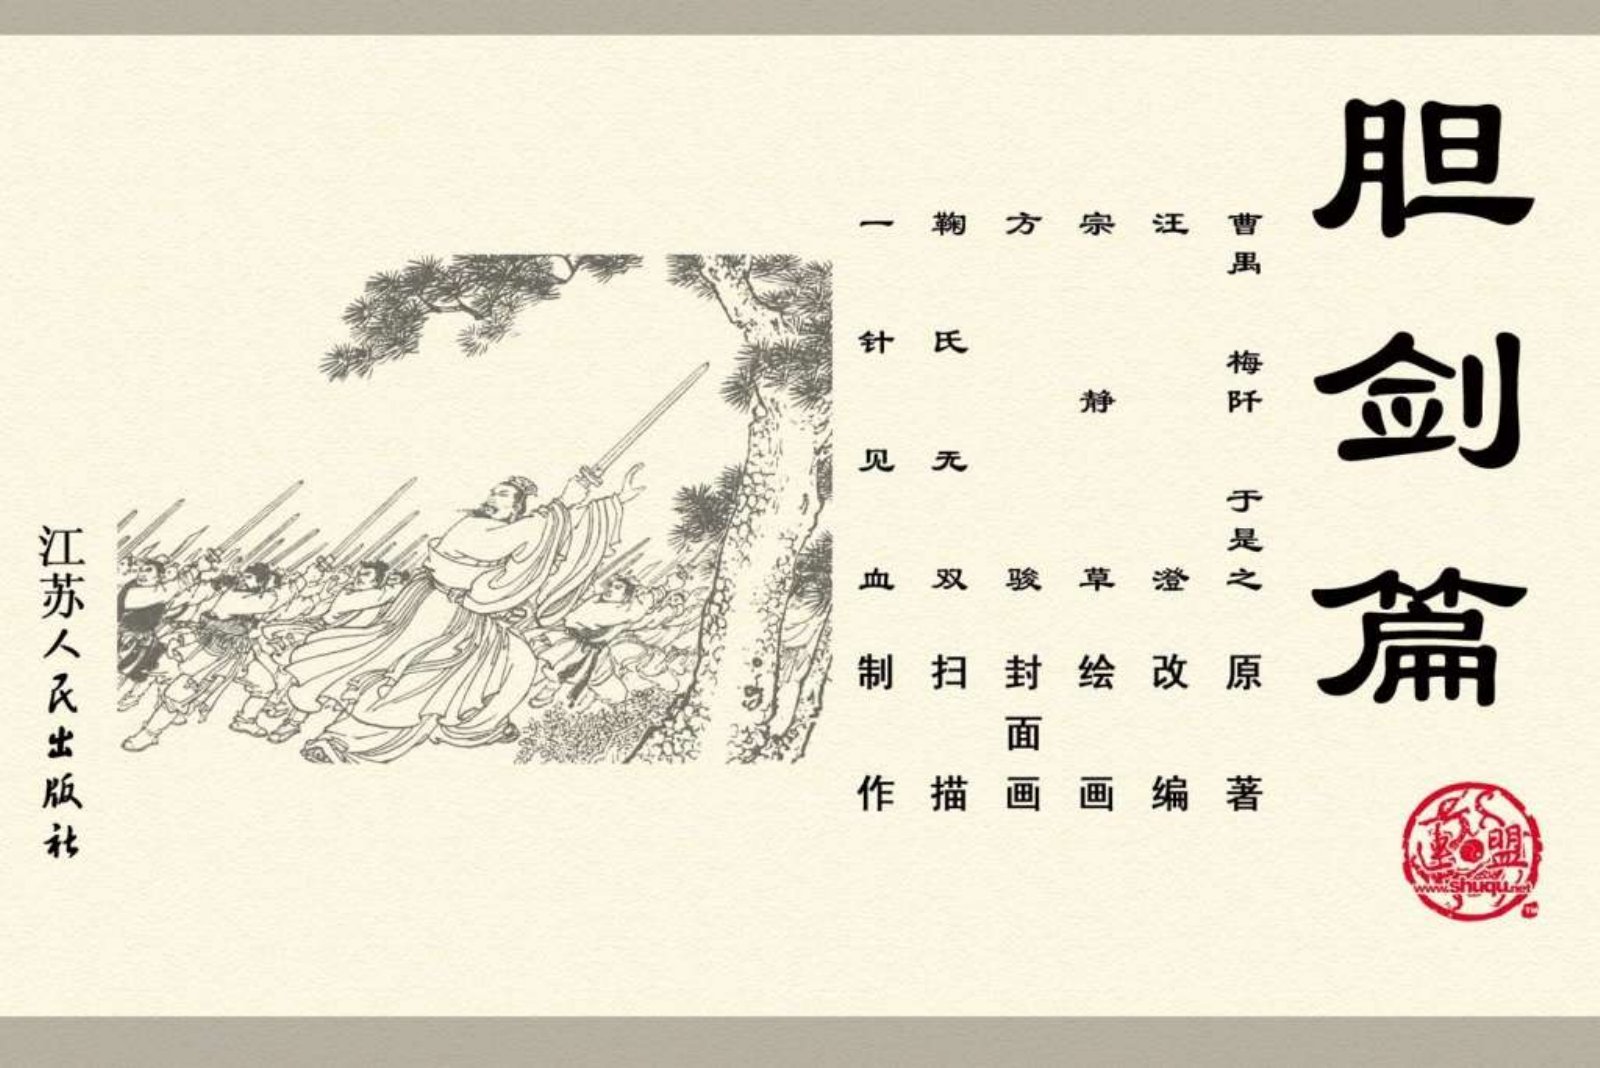 胆剑篇
曹禺 梅阡 于是之 原著
汪澄 改编
宗静草 绘画
方骏 封面画
鞠氏无双 扫描
一针见血 制作
江苏人民出版社
連盟
www.shuqu.net
TM